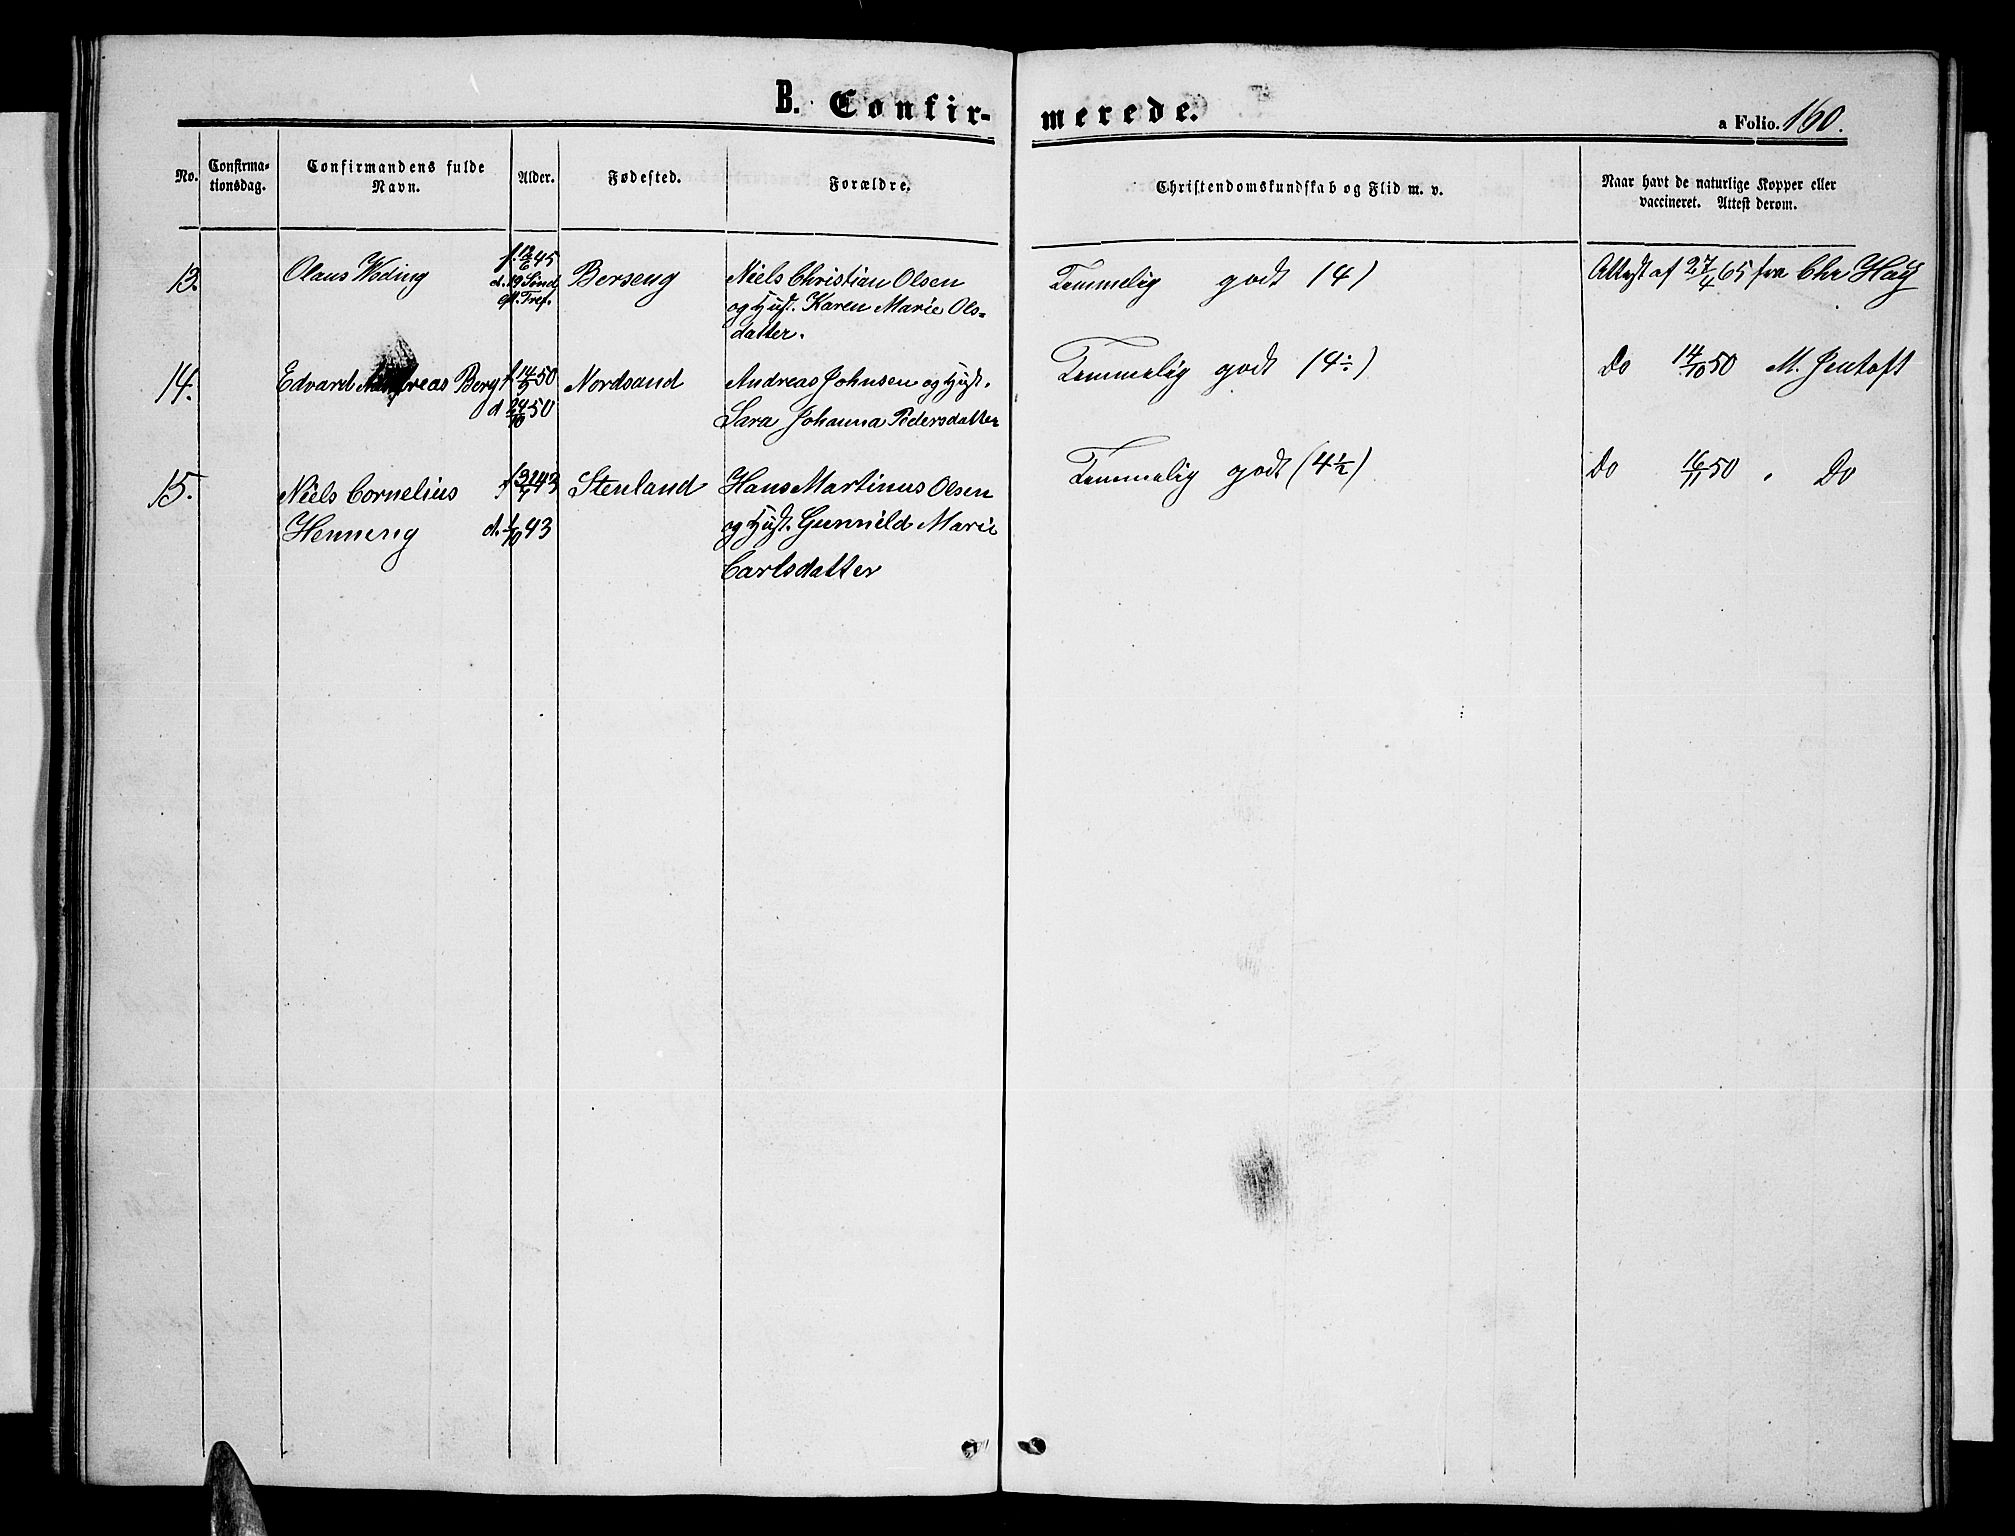 B. Confirmerede.
a Folio. 160.
No.
Confirmationsdag.
Confirmandens fulde Navn.
Alder.
Fødested.
Forældre.
Christendomskundskab og Flid m. v.
Naar havt de naturlige Kopper eller vaccineret. Attest derom.
13. Olaus Woding f. 12/6 45 Berseng Niels Christian Olsen Temmelig godt (4) Attest af 27/4 65 fra Chr
d. 19 Sønd og Hust. Karen Marie Ols-
eft. Tref. datter.
14. Edvard Andreas Berg f. 14/9 50 Nordsand Andreas Johnsen og Hust. Temmelig godt (4÷) Do 14/10 50 M. Jentoft
d 24/10 50 Sara Johanna Pedersdatter
15. Niels Cornelius f 31/7 43 Stenland Hans Martinus Olsen Temmelig godt (4½) Do 16/11 50 Do
Henning d. 1/10 43 og Hust. Gunnild Marie
Carlsdatter